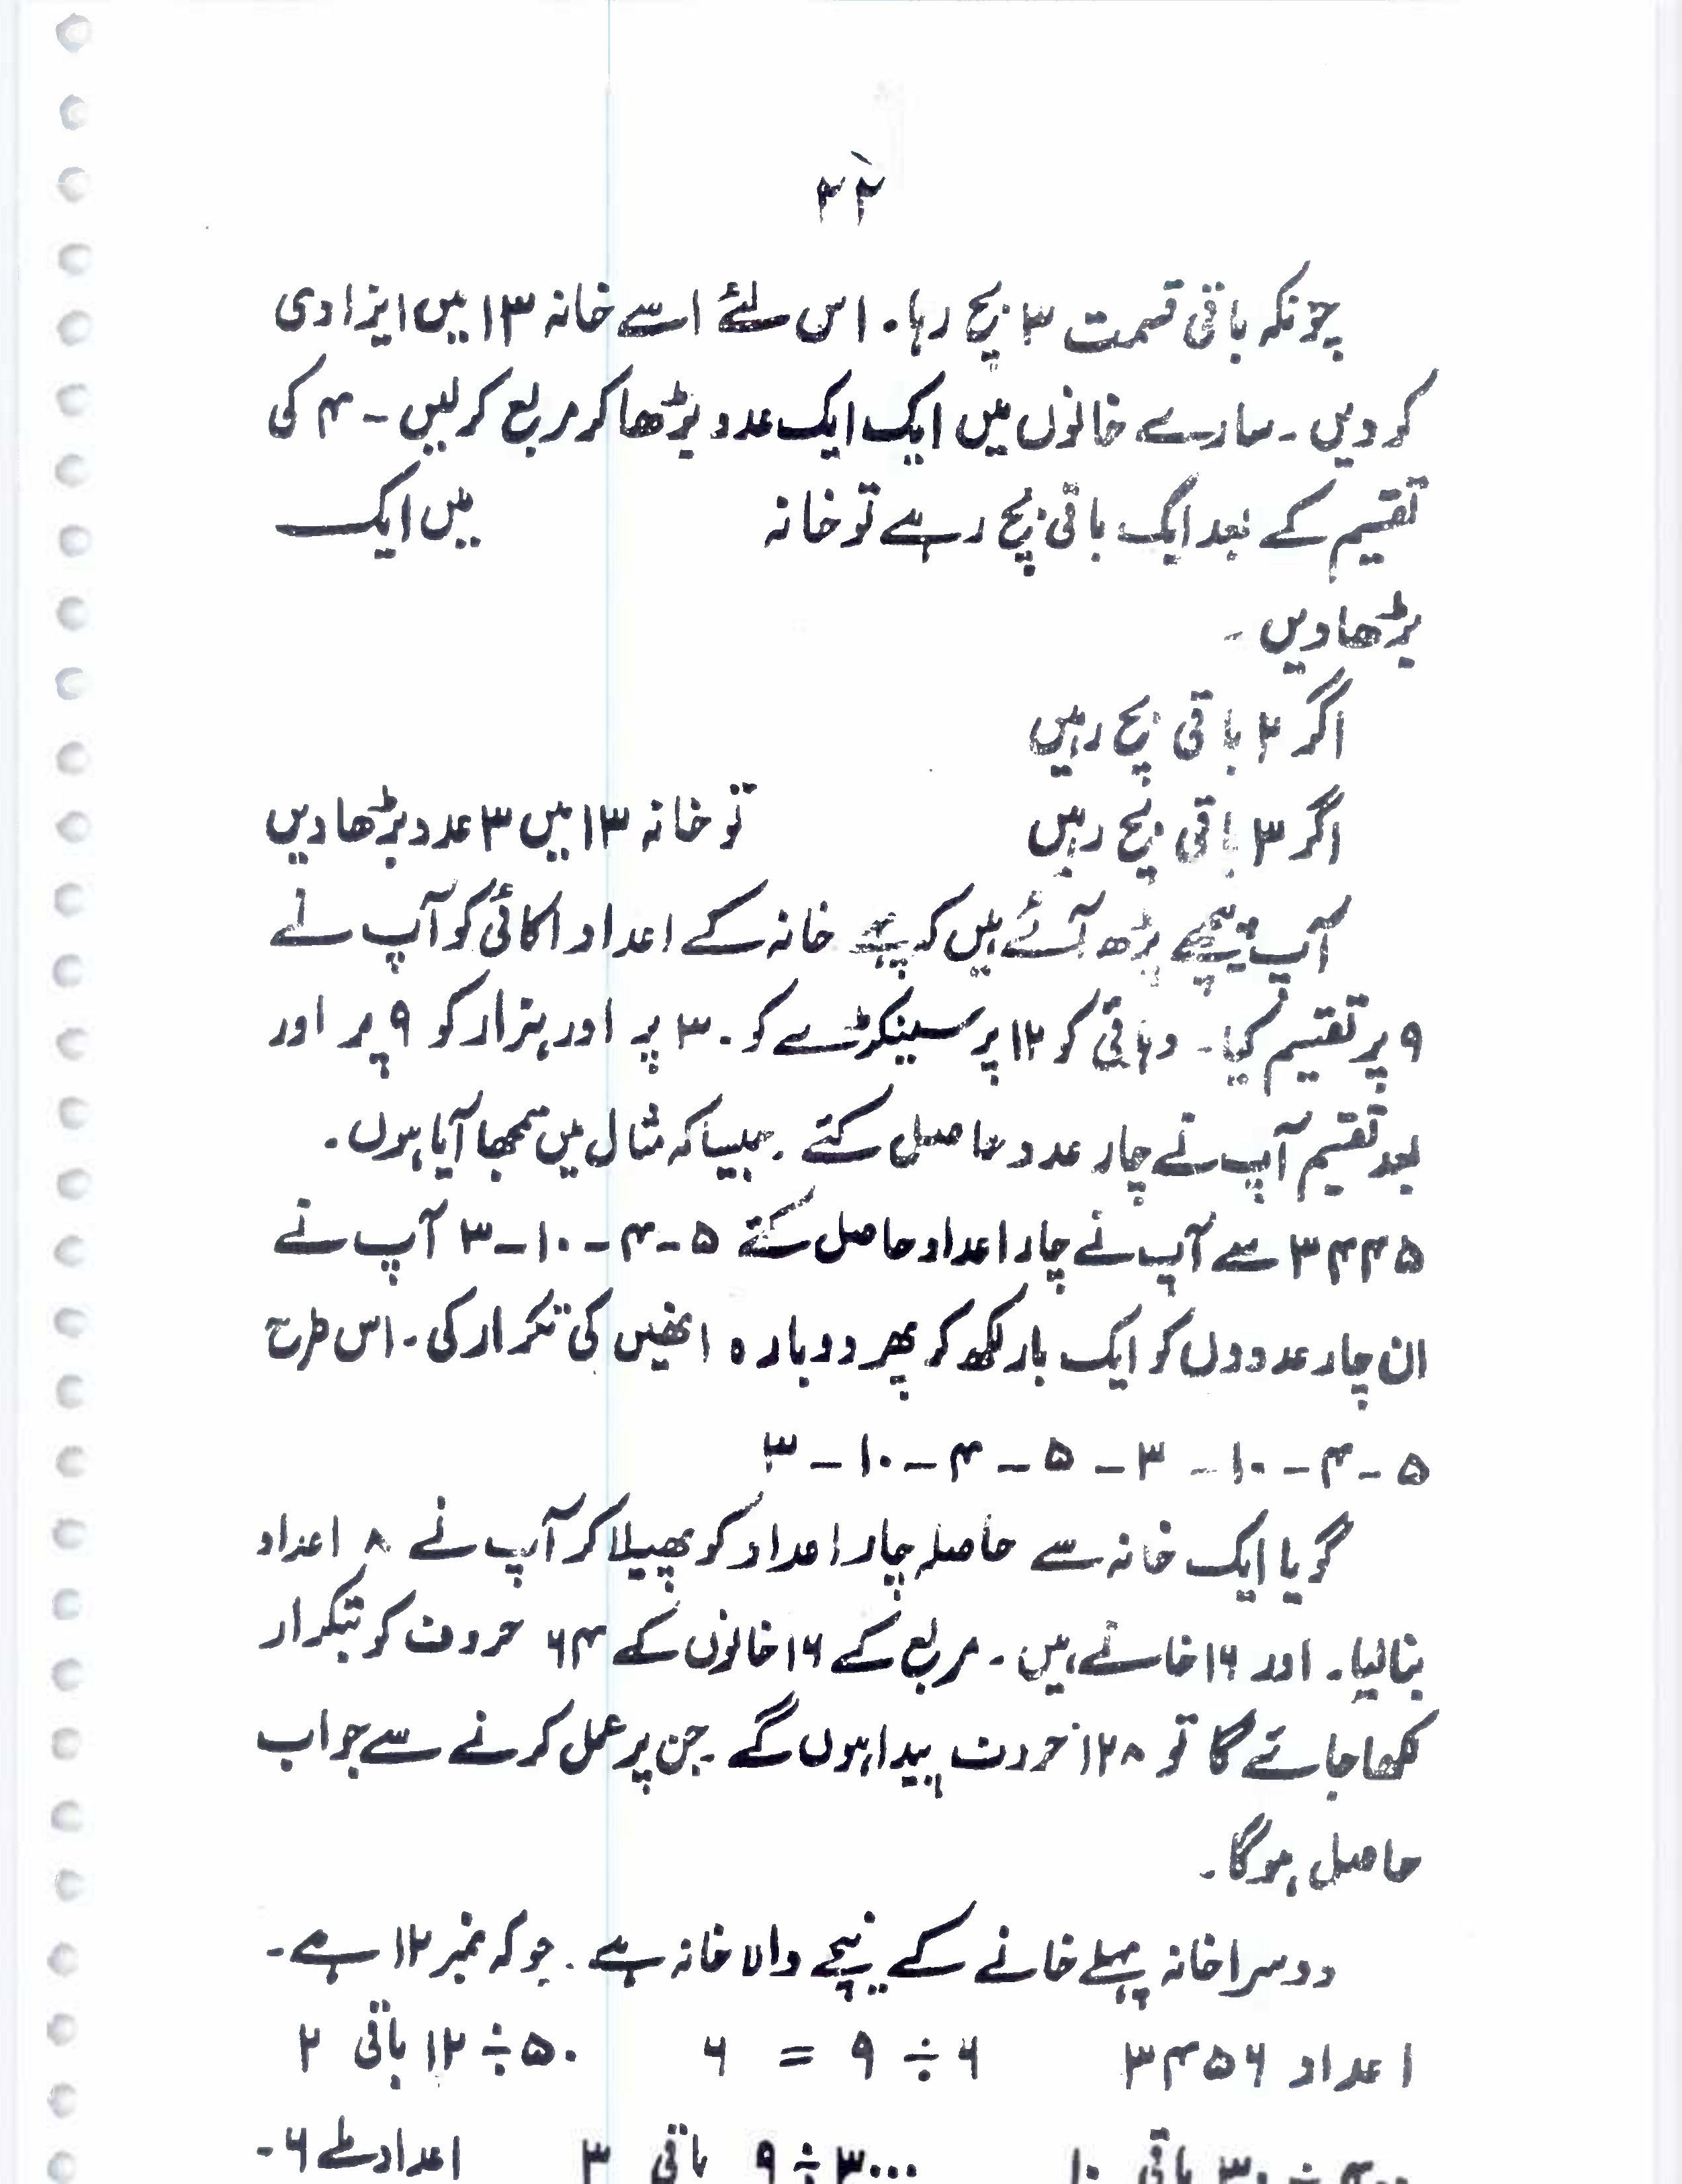 ۲۲
چونکہ باقی قسمت ۳ بچ رہا۔ اس لئے اسے خانہ ۱۳ میں ایزادی
کر دیں ۔ سارے خانوں میں ایک ایک عدد بڑھا کر مربع کر لیں ۔ ۴ کی
تقسیم کے بعد ایک باقی بچ رہے تو خانہ میں ایک
بڑھا دیں ۔
اگر ۲ باقی بچ رہیں
اگر ۳ باقی بچ رہیں تو خانہ ۱۳ میں ۳ عدد بڑھا دیں
آپ پیچھے پڑھ آئے ہیں کہ پہلے خانہ کے اعداد اکائی کو آپ نے
۹ پر تقسیم کیا ۔ دہائی کو ۱۲ پر سینکڑے کو ۳۰ پر اور ہزار کو ۹ پر اور
بعد تقسیم آپ نے چار عدد حاصل کئے ۔ جیسا کہ مثال میں سمجھا آیا ہوں ۔
۳۴۴۵ سے آپ نے چار اعداد حاصل کئے ۵ - ۴ - ۱۰ - ۳ آپ نے
ان چار عددوں کو ایک بار لکھ کر پھر دوبارہ انھیں کی تکرار کی ۔ اس طرح
۵ - ۴ - ۱۰ - ۳ - ۵ - ۴ - ۱۰ - ۳
گویا ایک خانہ سے حاصلہ چار اعداد کو پھیلا کر آپ نے ۸ اعداد
بنا لیا ۔ اور ۱۶ خانے ہیں ۔ مربع کے ۱۶ خانوں کے ۶۴ حروف کو بتکرار
لکھا جائے گا تو ۱۲۸ حروف پیدا ہوں گے ۔ جن پر عمل کرنے سے جواب
حاصل ہوگا ۔
دوسرا خانہ پہلے خانے کے نیچے والا خانہ ہے ۔ جو کہ نمبر ۱۲ ہے ۔
اعداد ۳۴۵۶ ۶ ÷ ۹ = ۶ ۵۰ ÷ ۱۲ باقی ۲
۴۰۰ ÷ ۳۰ باقی ۱۰ ۳۰۰۰ ÷ ۹ باقی ۳ اعداد ملے ۶ -